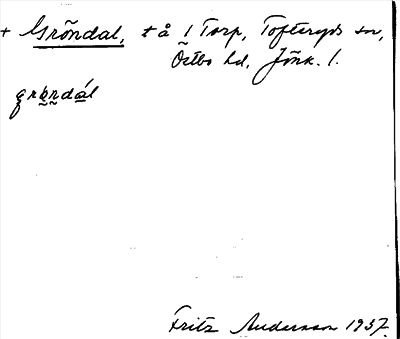 + Gröndal, t å 1 Torp, Tofteryds sn,
Östbo hd, Jönk. l.
Fritz Andersson 1937.